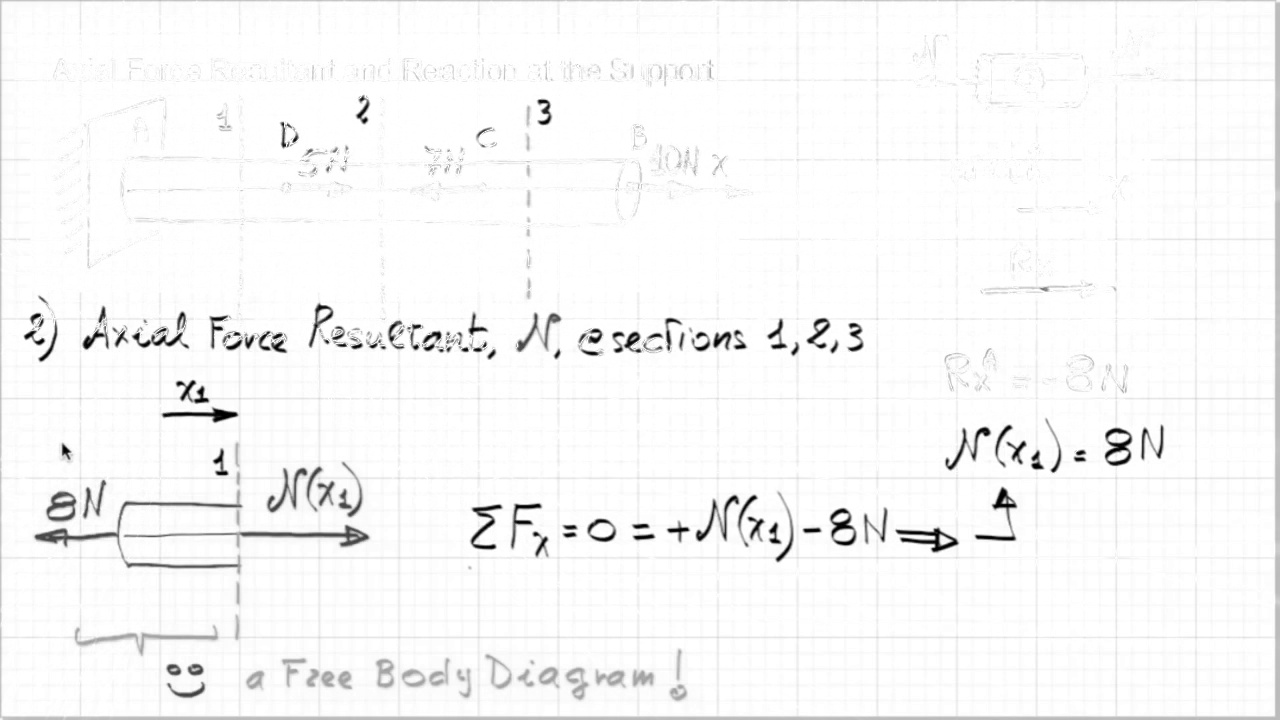 Axial Force Resultant and Reaction at the Support
N N
1 2 3
A D C B
5N 7N 10N x
x
Rx
2) Axial Force Resultant, N, @ sections 1, 2, 3
Rx^A = -8N
x1
N(x1) = 8N
1
8N N(x1)
ΣFx = 0 = +N(x1) - 8N ⇒
a Free Body Diagram!